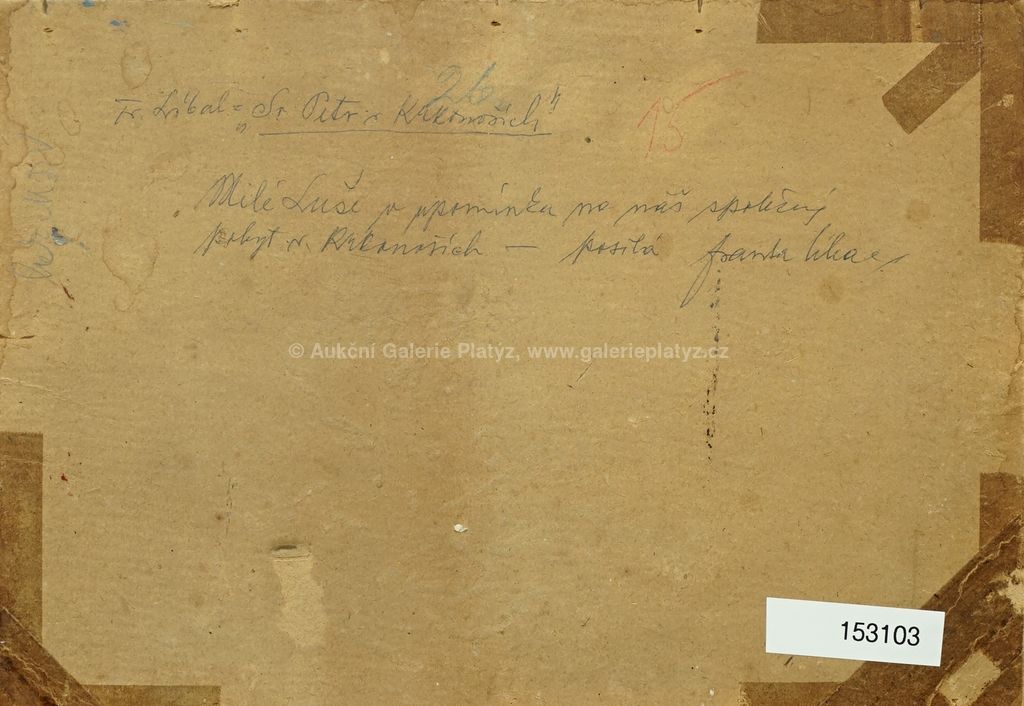 26
Fr. Líbal = „Sv. Petr v Krkonoších"
15
Milé Luše v upomínku na náš společný
pobyt v Krkonoších — posílá Franta Líbal
© Aukční Galerie Platýz, www.galerieplatyz.cz
153103